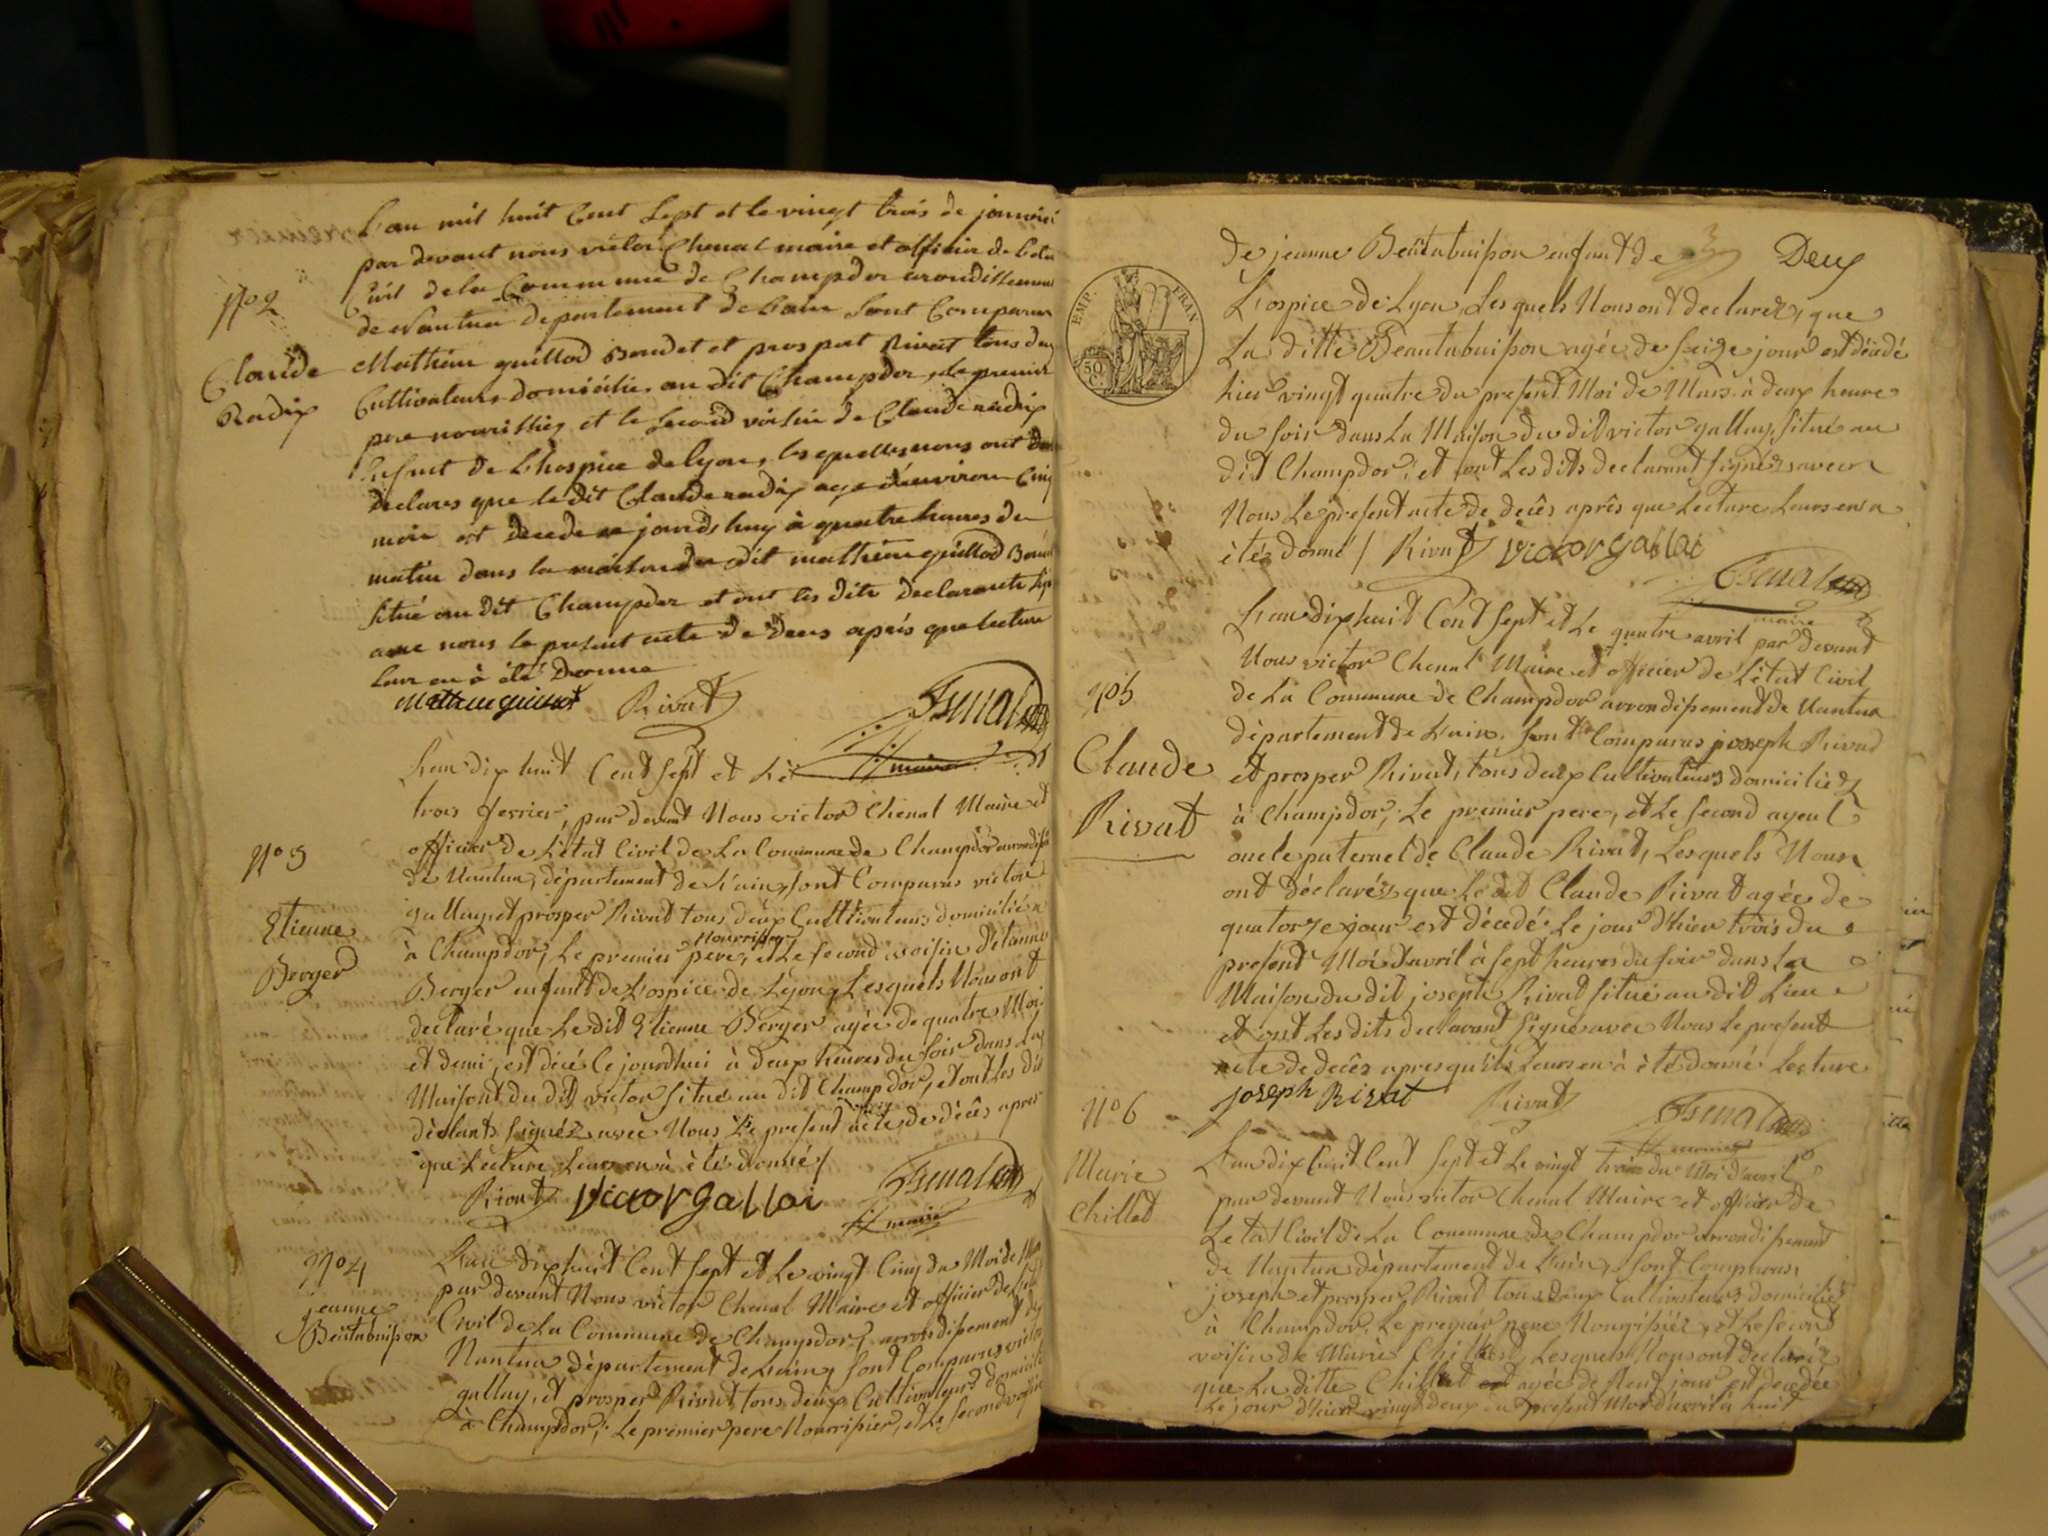 L'an mil huit Cent Sept et le vingt trois de janvier
par devant nous victor Chenal maire et officier de l'eta
Civil de la Commune de Champdor arondissement
de Nantua departement de L'ain Sont Comparus
Mathieu guillod Boudet et prospert Rivat tous deux
Cultivateurs domicilies au dit Champdor, le premier
pere nourissier et le second voisin de Claude radix
Enfant de L'hospice de lyon, lesquelles nous ont
declares que le dit Claude radix age d'environ Cinq
mois est decede ce jourds huy à quatre heures du
matin dans la maison du dit mathieu guillod
situé au dit Champdor et ont les dits declarants
avec nous le present acte de deces après que lecture
Leur en à été Donne
N° 2
Claude
Radix
Mathieu guillod Rivat Chenal
maire
L'an dix huit Cent Sept et Le
trois fevrier, par devant Nous victor Chenal Maire et
officier de L'état Civil de La Commune de Champdor
de Nantua, département de L'ain, sont Comparus victor
gallay et prosper Rivat tous deux Cultivateurs domiciliés
à Champdor, Le premier pere nourrissier, et Le second voisin d'étienne
Berger enfant de L'ospice de Lyon, Lesquels Nous ont
declaré que Le dit Etienne Berger agée de quatre Moi
et demi, est décé Ce jourdhui à deux heures du soir dans La
Maison du dit victor situé au dit Champdor, et ont Les dit
déclants signéz avec Nous Le present acte de décès apres
que Lecture Leur en à été donné /
N° 3
Etienne
Berger
Rivat victor gallai Chenal
maire
N° 4
jeanne
Beutabuisson
L'an dix huit Cent Sept et Le vingt Cinq du Moi de
par devant Nous victor Chenal Maire et officier de
Civil de La Commune de Champdor, arrondissement de
Nantua département de L'ain, sont Comparus victor
gallay, et prosper Rivat, tous deux Cultivateurs domicilié
à Champdor; Le premier pere Nourrissier, et Le second voisin
Deux
de jeanne Beutabuisson enfant de
L'ospice de Lyon, Lesquels Nous ont declarez, que
La ditte Beautabuisson agée de seize jour est décédé
hier vingt quatre du present Moi de Mars à deux heure
du soir dans La Maison du dit victor gallay, situé au
dit Champdor; et ont Les dits declarant signéz avec
Nous Le present acte de decês après que Lecture Leurs en a
étéz donné / Rivat victor gallai
Chenal
maire
EMP. FRAN
50
C.
L'an dix huit Cent Sept et Le quatre avril par devant
Nous victor Chenal Maire et officier de L'état Civil
de La Commune de Champdor arrondissement de Nantua
département de L'ain. sont Comparus joseph Rivad
et prosper Rivat, tous deux Cultivateurs domiciliéz
à Champdor, Le premier pere, et Le second ayeul
oncle paternel de Claude Rivat, Lesquels Nous
ont déclaréz que Le dit Claude Rivat agée de
quatorze jour est décedé Le jour d'hier trois du
present Moi d'avril à sept heures du soir dans La
Maison du dit joseph Rivat situé au dit Lieu
et ont Les dits declarant signé avec Nous Le present
acte de decês apres qu'ils Leurs en à été donné Lecture
N° 5
Claude
Rivat
joseph Rivat Rivat Chenal
maire
N° 6
Marie
Chillet
L'an dix huit Cent Sept et Le vingt trois du Moi d'avril
par devant Nous victor Chenal Maire et officier de
Létat Civil de La Commune de Champdor arrondissement
de Nantua département de L'ain, sont Comparus
joseph et prosper Rivat tous deux Cultivateurs domiciliéz
à Champdor, Le premier pere Nourrissiér, et Le second
voisin de Marie Chillet, Lesquels Nous ont declaréz
que La ditte Chillet agée de Neuf jour est decedée
Le jour d'hier vingt deux du present Moi d'avril à huit